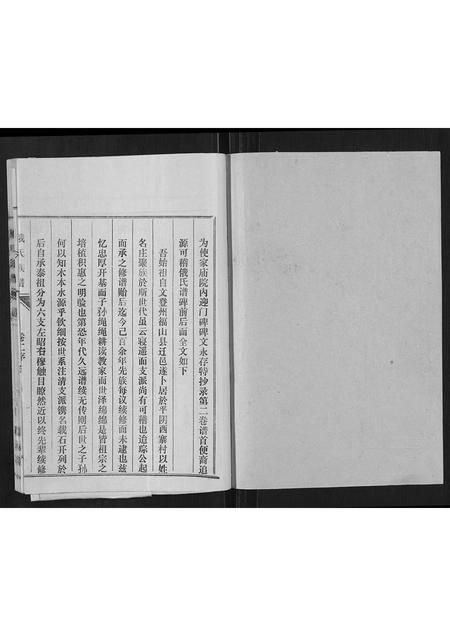 为使家庙院内迎门碑碑文永存特抄录第二卷谱首便裔追
源可稽俄氏谱碑前后面全文如下
吾始祖自文登州福山县辽邑遂卜居於平阴西寨村以姓
名庄聚族於斯世代虽云寝遥而支派尚有可稽也追踪公起
而承之修谱贻后迄今已百余年先族每议续修而未逮也兹
忆忠厚开基而子孙绳绳耕读教家而世泽绵绵是皆祖宗之
培植积惠之明验也第恐年代久远谱续无传则后世之子孙
何以知本本水源乎钦细按世系注清支派镌名载石开列於
后自承泰祖分为六支左昭右穆触目瞭然近以终先辈续修
氏族谱
卷二序